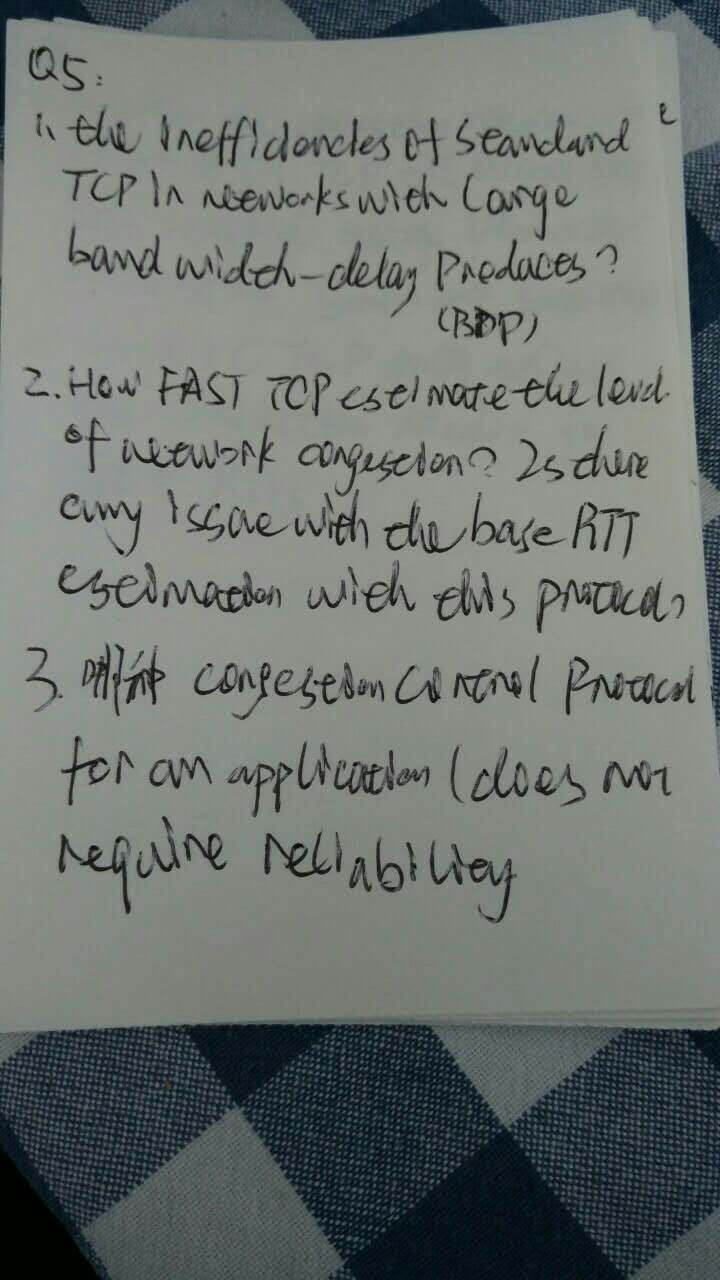 Q5:
1. the inefficiencies of Standard
TCP in networks with large
bandwidth-delay Products?
(BDP)
2. How FAST TCP estimate the level
of network congestion? Is there
any issue with the base RTT
estimation with this protocol?
3. 哪种 congestion control Protocol
for an application (does not
require reliability